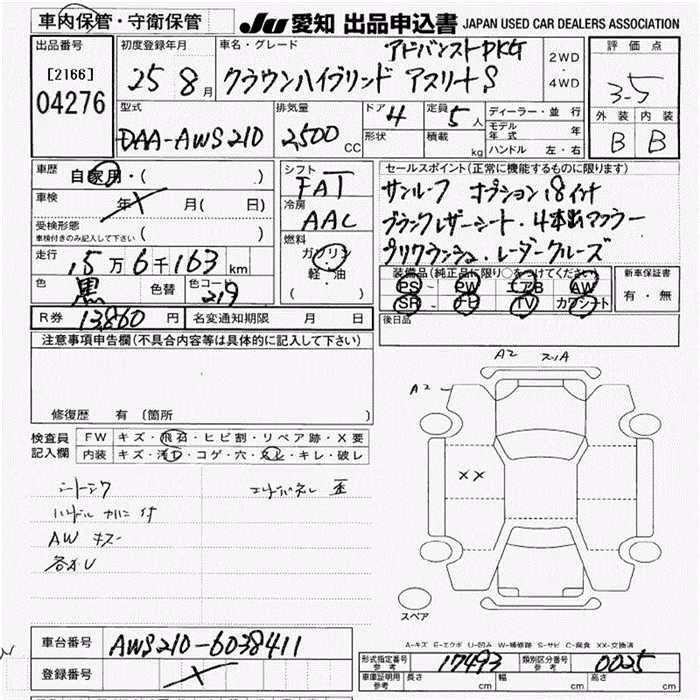 車内保管・守衛保管
JU 愛知 出品申込書 JAPAN USED CAR DEALERS ASSOCIATION
出品番号
[2166]
04276
初度登録年月
25 8月
車名・グレード
アドバンストPKG
クラウンハイブリッド アスリートS
2WD
・
4WD
評価点
3-5
外装 内装
B B
型式
DAA-AWS210
排気量
2500 CC
ドア 4
形状
定員 5人
積載 kg
ディーラー・並行
モデル年式 年
ハンドル 左・右
車歴
自家用・( )
車検
年X月( 日)
受検形態
車検付きのみ記入して下さい ( )
走行
15万6千163 km
色 黒 色替 色コード 219
シフト
FAT
冷房
AAC
燃料
ガソリン
・軽・油
( )
セールスポイント(正常に機能するものに限ります)
サンルーフ オプション18インチ
ブラックレザーシート・4本出マフラー
プリクラッシュ・レーダークルーズ
装備品(純正品に限り○をつけてください)
PS PW エアB AW
SR ナビ TV カワシート
新車保証書
有・無
R券 13,860 円
名変通知期限 月 日
後日品
注意事項申告欄(不具合内容等は具体的に記入して下さい)
修復歴 有 (箇所 )
検査員
記入欄
FW キズ・飛石・ヒビ割・リペア跡・X要
内装 キズ・汚れ・コゲ・穴・スレ・キレ・破レ
AW キズ
A2
A2
XX
スペア
A-キズ E-エクボ U-凹み W-補修跡 S-サビ C-腐食 XX-交換済
車台番号 AWS210-6038411
登録番号 X
形式指定番号
参考
17493
類別区分番号
参考
0025
車庫証明用
参考
長さ cm 幅 cm 高さ cm